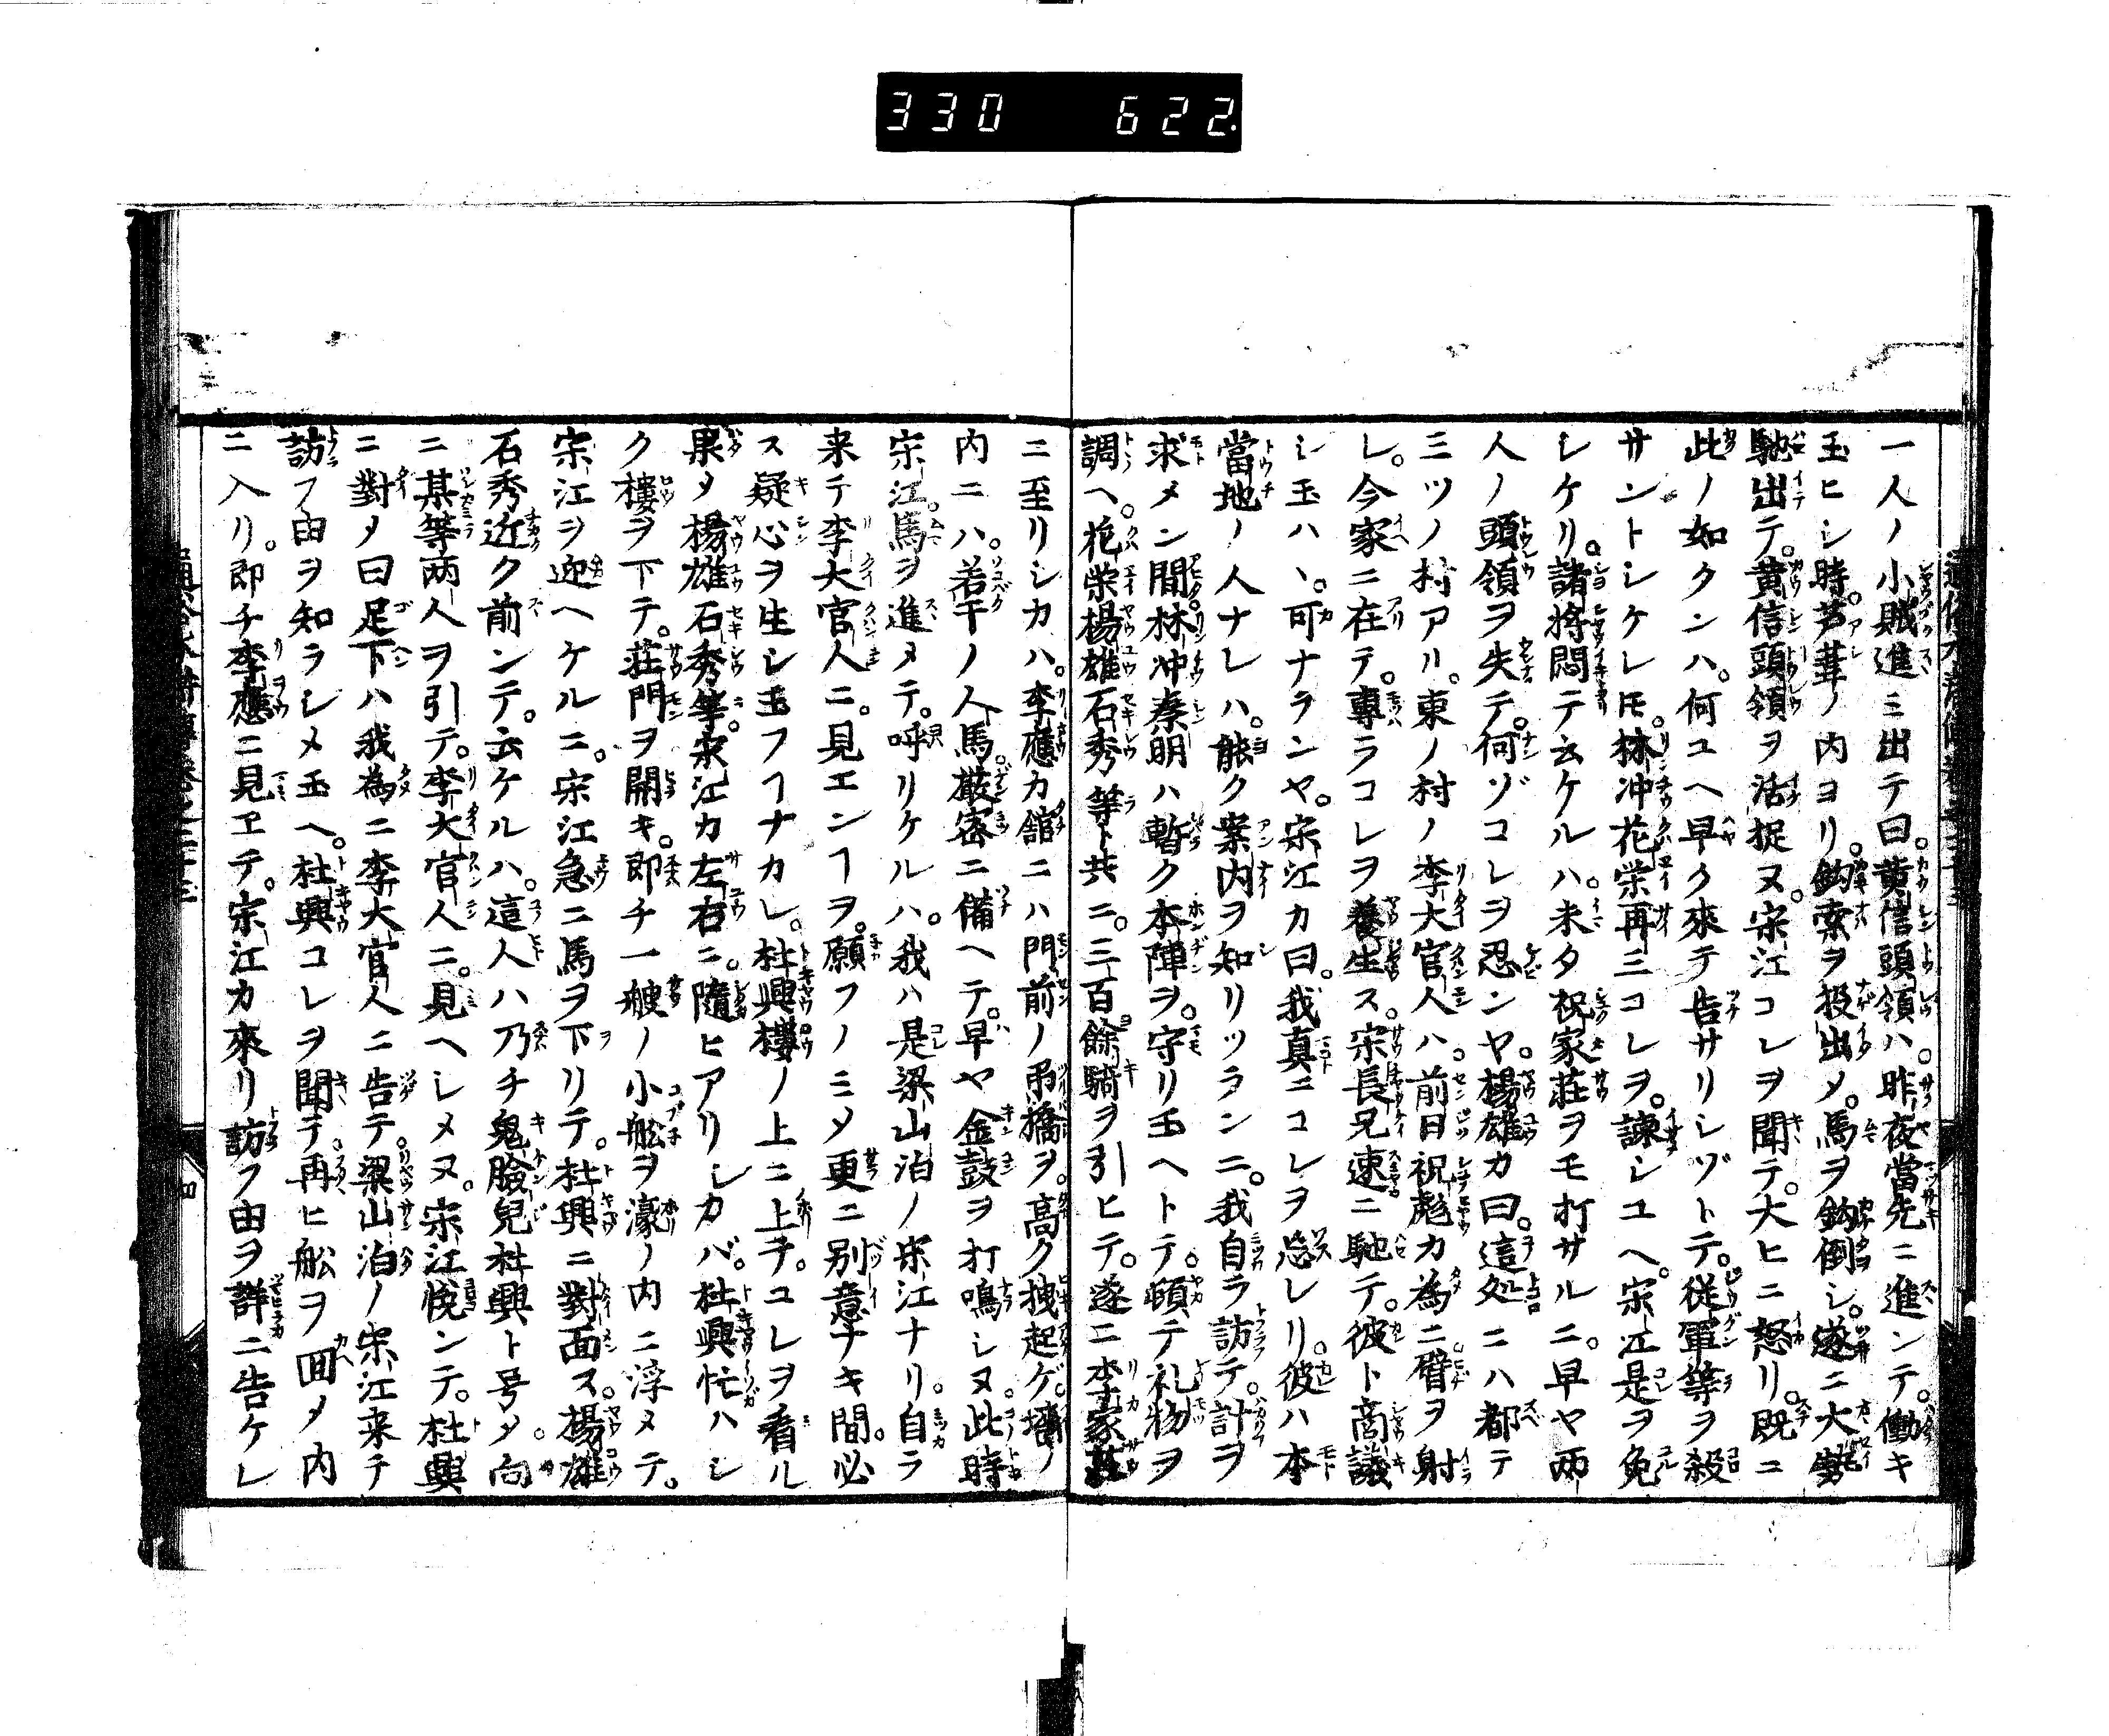 330 622.
一人ノ小賊進ミ出テ曰。黄信頭領ハ。昨夜當先ニ進ンテ。働キ
玉ヒシ時。芦葦ノ内ヨリ。鈎索ヲ投出メ。馬ヲ鈎倒シ。遂ニ大勢
馳出テ。黄信頭領ヲ活捉ヌ。宋江コレヲ聞テ。大ヒニ怒リ。既ニ
此ノ如クンハ。何ユヘ早ク來テ告サリシヅトテ。従軍等ヲ殺
サントシケレ𪜈。林冲花栄再三コレヲ。諫シユヘ。宋江是ヲ免
シケリ。諸將悶テ云ケルハ。未タ祝家莊ヲモ打サルニ。早ヤ両
人ノ頭領ヲ失テ。何ゾコレヲ忍ンヤ。楊雄カ曰。這処ニハ都テ
三ツノ村アリ。東ノ村ノ李大官人ハ。前日祝彪カ為ニ。臂ヲ射
レ。今家ニ在テ。專ラコレヲ養生ス。宋長兄速ニ馳テ。彼ト商議
シ玉ハヽ。可ナランヤ。宋江カ曰。我真ニコレヲ忘レリ。彼ハ本
當地ノ人ナレハ。能ク案内ヲ知リツランニ。我自ラ訪テ。計ヲ
求メン間。林冲秦明ハ暫ク本陣ヲ。守リ玉ヘトテ。頓テ礼物ヲ
調ヘ。花栄楊雄石秀等ト共ニ。三百餘騎ヲ引ヒテ。遂ニ李家莊
ニ至リシカハ。李應カ舘ニハ門前ノ吊橋ヲ。高ク拽起ゲ。墻ノ
内ニハ。若干ノ人馬。嚴密ニ備ヘテ。早ヤ金鼓ヲ打鳴シヌ。此時
宋江。馬ヲ進メテ。呼リケルハ。我ハ是梁山泊ノ宋江ナリ。自ラ
来テ李大官人ニ。見エンヿヲ。願フノミメ更ニ別意ナキ間。必
ス疑心ヲ生シ玉フヿナカレ。杜興樓ノ上ニ上テ。コレヲ看ル
果メ楊雄石秀等。宋江カ左右ニ。隨ヒアリシカバ。杜興忙ハシ
ク樓ヲ下テ。莊門ヲ開キ。即チ一艘ノ小舩ヲ濠ノ内ニ浮メテ。
宋江ヲ迎ヘケルニ。宋江急ニ馬ヲ下リテ。杜興ニ對面ス。楊雄
石秀近ク前ンテ。云ケルハ。這人ハ乃チ鬼臉兒杜興ト号タ。向
ニ某等両人ヲ引テ。李大官人ニ。見ヘシメヌ。宋江悦ンテ。杜興
ニ對メ曰足下ハ我為ニ李大官人ニ告テ。梁山泊ノ宋江来テ
訪フ由ヲ知ラシメ玉ヘ。杜興コレヲ聞テ。再ヒ舩ヲ囬メ内
ニ入リ。即チ李應ニ見ヱテ。宋江カ來リ訪フ由ヲ詳ニ告ケレ
四